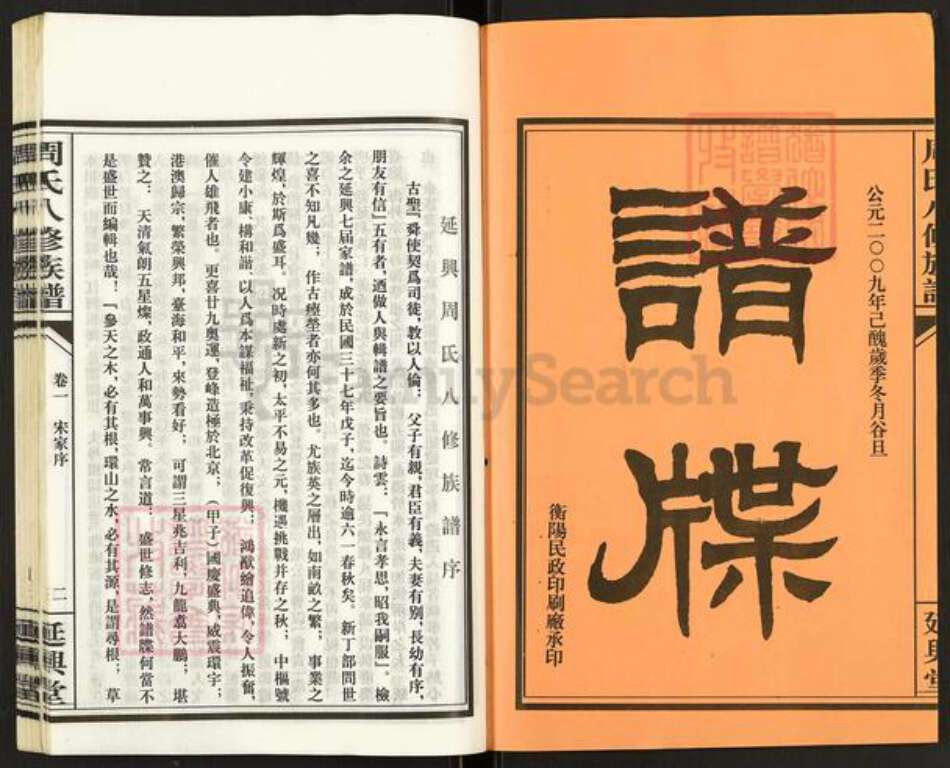 周氏八修族譜
公元二〇〇九年己醜歲季冬月谷旦
譜牒
衡陽民政印刷廠承印
延興堂
延興周氏八修族譜序
古聖『舜使契爲司徒，教以人倫； 父子有親，君臣有義，夫妻有別，長幼有序，
朋友有信』五有者，迺做人與輯譜之要旨也。詩雲： 『永言孝思，昭我嗣服』。檢
余之延興七届家譜，成於民國三十七年戊子，迄今時逾六一春秋矣。 新丁部問世
之喜不知凡幾； 作古瘞塋者亦何其多也。尤族英之層出，如南畝之繁； 事業之
輝煌，於斯爲盛耳。 况時處新之初，太平不易之元，機遇挑戰并存之秋； 中樞號
令建小康、構和諧，以人爲本謀福祉，秉持改革促復興； 鴻猷繪追偉，令人振奮，
催人雄飛者也。更喜廿九奥運，登峰造極於北京； （甲子）國慶盛典，威震環宇；
港澳歸宗，繁榮興邦，臺海和平，來勢看好； 可謂三星兆吉利，九龍翥大鵬； 堪
贊之： 天清氣朗五星燦，政通人和萬事興。常言道： 盛世修志，然譜牒何當不
是盛世而編輯也哉！『參天之木，必有其根，環山之水，必有其源，是謂尋根； 草
周氏八修族譜
卷一 宋家序
二
延興堂
FamilySearch